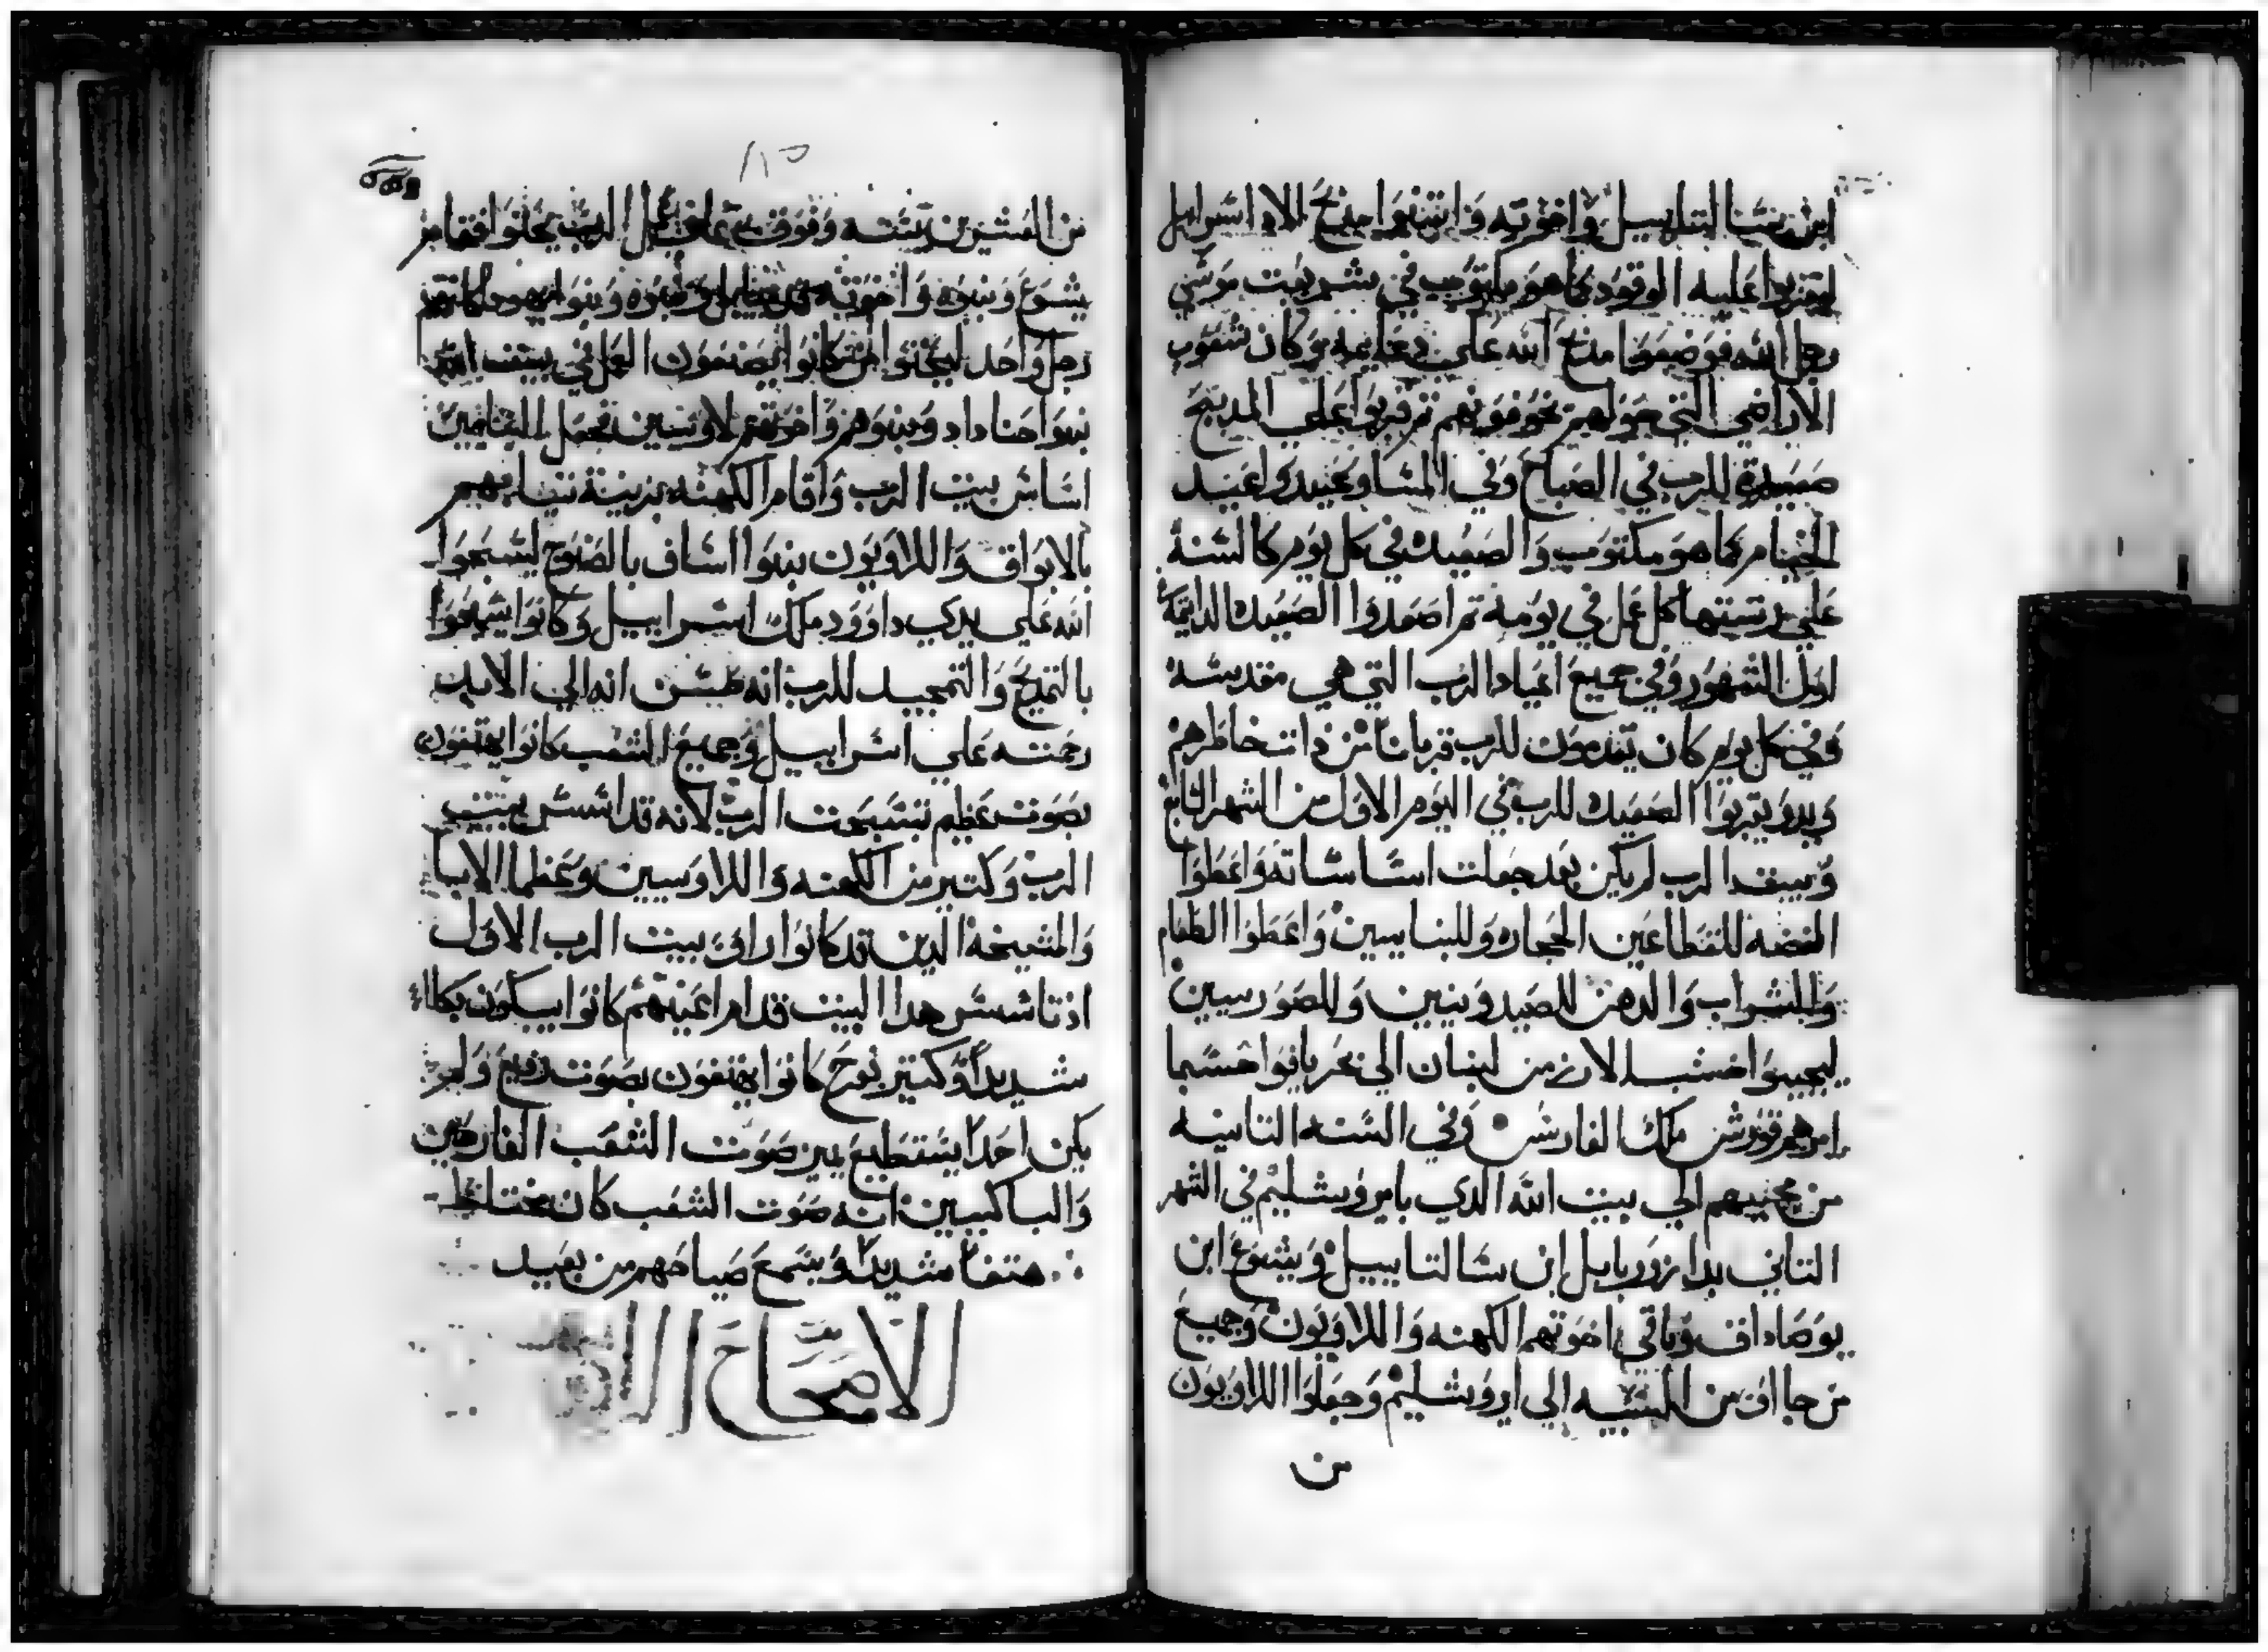 ابن شالتاييل واخوته وابتنوا مدبح الاه اسراييل
ليقربوا عليه الوقود كما هو مكتوب في شريعت موسي
رجل الله فوضعوا مدبح الله علي دعايمه وكان شعوب
الاراضي التي حولهم تخوفونهم ترقربوا علي المدبح
صعيدة للرب في الصباح وفي المسا وعيدوا عيد
الخيام كما هو مكتوب والصعيده في كل يوم كالسنة
علي رتبتها كل عمل في يومه تم اصعدوا الصعيده الدايمة
اول الشهور وفي جميع اعياد الرب التي هي مقدسه
وفي كل يوم كان يقدمون للرب قربانا من ذات خاطرهم
وبدو يقربوا الصعيده للرب في اليوم الاول من الشهر السابع
وبيت الرب لم يكن بعد جعلت اساساته واعطوا
الفضه للقطاعين الحجاره وللبنايين واعطوا الطعام
والشراب والدهن للصيدونيين وللصورسيين
ليجيبوا خشب الارز من لبنان الي بحر يافوا حسبما
امرهم قورش ملك الفارس وفي السنه التانيه
من مجيبهم الي بيت الله الدي بايروشليم في الشهر
التاني بدا زوربابل ابن سالتاييل ويشوع ابن
يوصاداق وباقي اخوتهم الكهنه واللاويون وجميع
من جااو من السبيه الي ايروشليم وجعلوا اللاويون
من
١٨٥
من العشرين سنه وفوق عمل الرب
يشوع وبنوه واخوته وبنوه وبنوا يهودا كانهم
رجل واحد كانوا يصنعون العمل في بيت الله
بنوا حناداد وبنوهم واخوتهم لاوسين
اساس بيت الرب واقام الكهنه بزينة تيابهم
بالابواق واللاويون بنوا اساف بالصنوج ليسبحوا
الله علي يدي داوود ملك اسراييل وكانوا يسبحوا
بالتمديح والتمجيد للرب انه انه الي الابد
رحمته علي اسراييل وجميع الشعب كانوا يهتفون
بصوت عظيم بتسبحت الرب لانه قد اسس بيت
الرب وكتير من الكهنه واللاوسيين وعظما الابا
والمشيخه الدين قد كانوا راوي بيت الرب الاول
اذ تاسس هدا البيت قدام اعينهم كانوا يبكون بكاء
شديدا وكتير بفرح كانوا يهتفون بصوت رفيع ولم
يكن احدا يستطيع يميز صوت الشعب الفارحين
والباكيين انه صوت الشعب كان مختلط
هتفا شديدا وسمع صياحهم من بعيد
الاصحاح